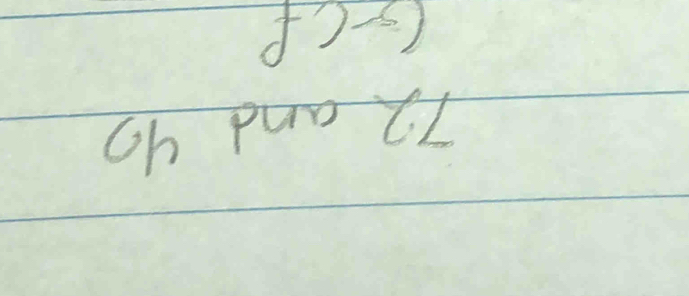 72 and 40
GCf